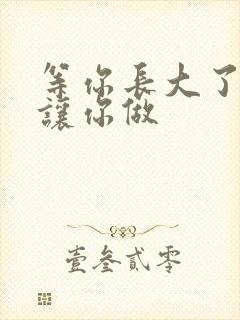 等你長大了
讓你做
壹叁貳零